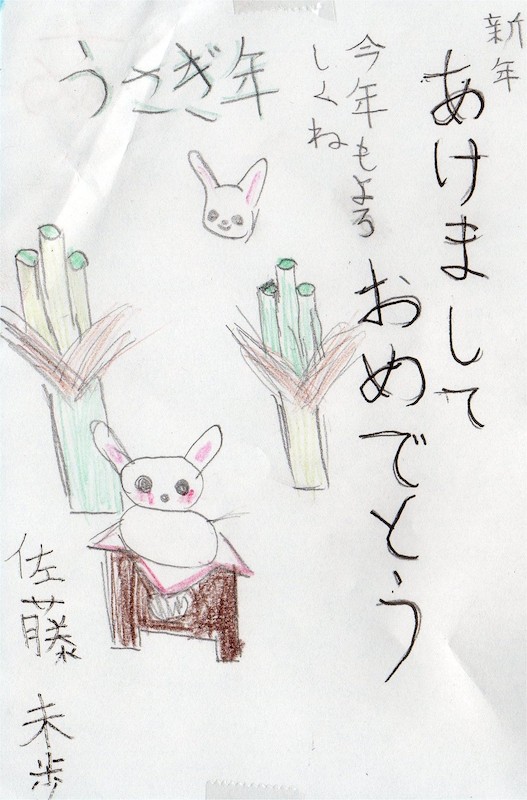 新年
あけまして
おめでとう
今年もよろ
しくね
うさぎ年
佐藤 未歩